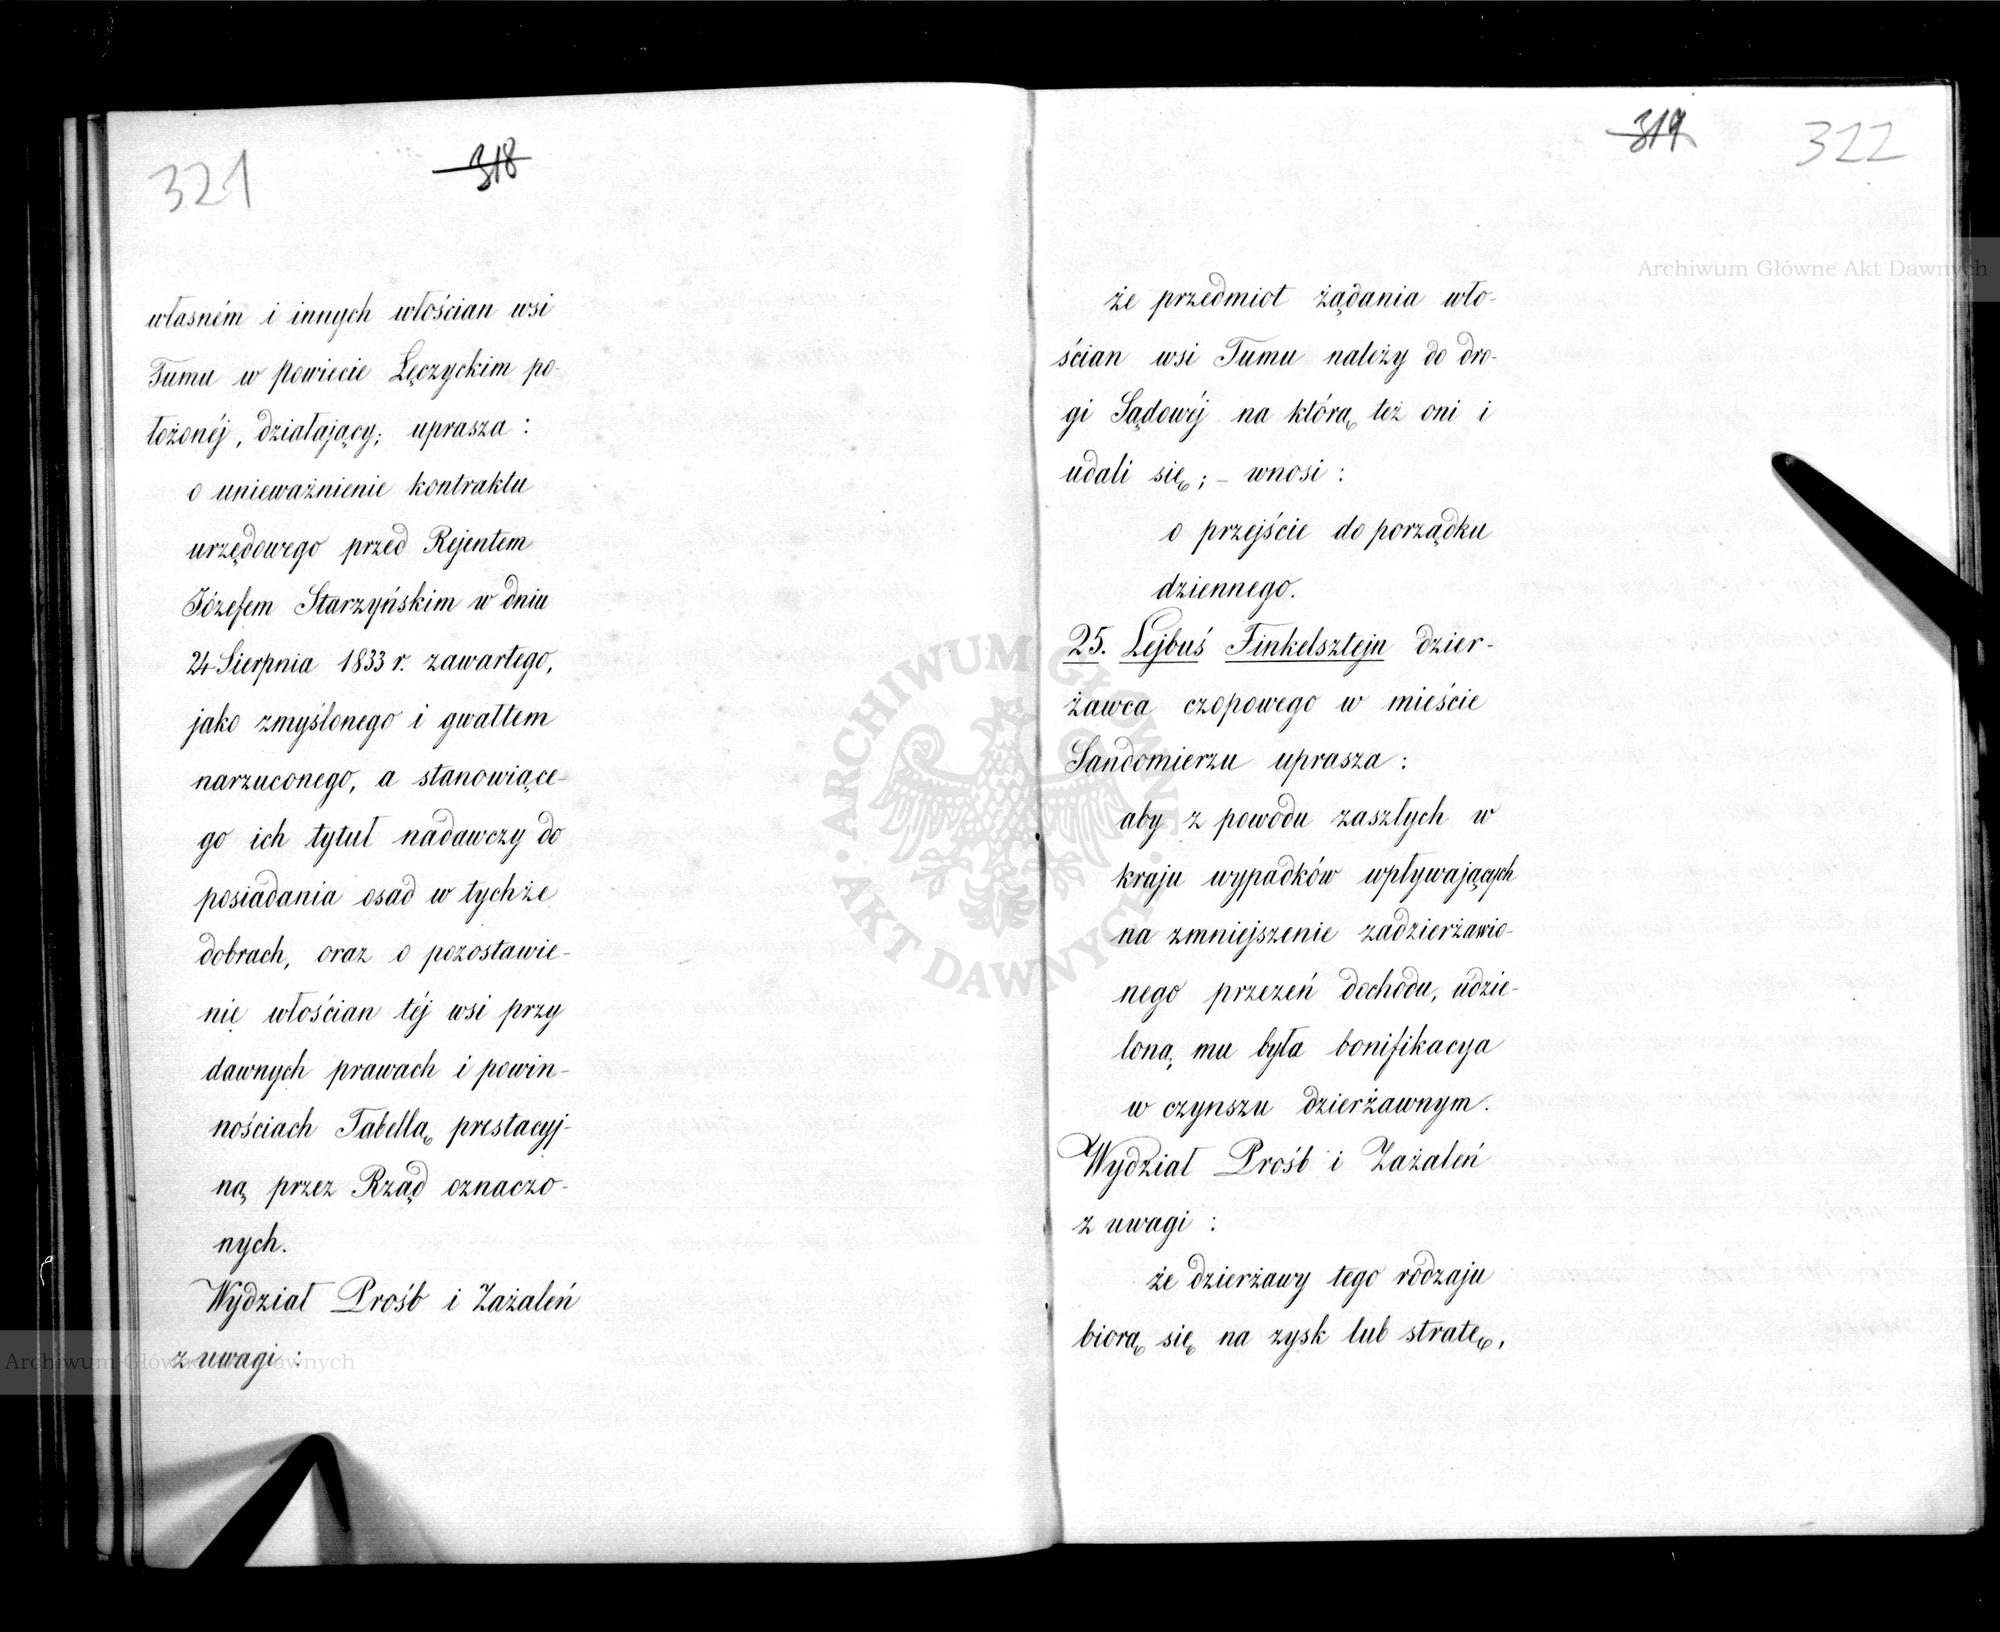 321
318
własném i innych włościan wsi
Tumu w Powiecie Łęczyckim po-
łożonéj, działający; uprasza:
o unieważnienie kontraktu
urzędowego przed Rejentem
Józefem Starzyńskim w dniu
24 Sierpnia 1833 r. zawartego,
jako zmyślonego i gwałtem
narzuconego, a stanowiące-
go ich tytuł nadawczy do
posiadania osad w tychże
dobrach, oraz o pozostawie-
nie włościan téj wsi przy
dawnych prawach i powin-
nościach Tabellą prestacyj-
ną przez Rząd oznaczo-
nych.
Wydział Prośb i Zażaleń
z uwagi:
319
322
że przedmiot żądania wło-
ścian wsi Tumu należy do dro-
gi Sądowéj na którą też oni i
udali się; – wnosi:
o przejście do porządku
dziennego.
25. Lejbuś Finkelsztejn dzier-
żawca czopowego w mieście
Sandomierzu uprasza:
aby z powodu zaszłych w
kraju wypadków wpływających
na zmniejszenie zadzierżawio-
nego przezeń dochodu, udzie-
loną mu była bonifikacya
w czynszu dzierżawnym.
Wydział Prośb i Zażaleń
z uwagi:
że dzierżawy tego rodzaju
biorą się na zysk lub stratę,
Archiwum Główne Akt Dawnych
Archiwum Główne Akt Dawnych
ARCHIWUM GŁÓWNE
AKT DAWNYCH